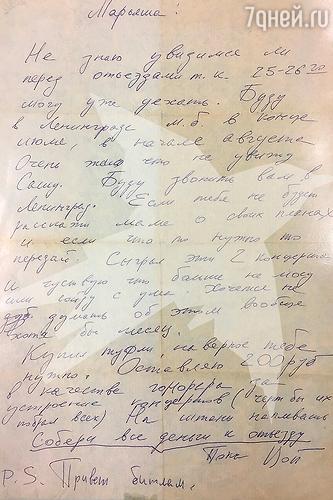 7дней.ru
Марьяша!
Не знаю увидимся ли
перед отъездами т.к. 25-26го
могу уже уехать. Буду
в Ленинграде м.б. в конце
июля, в начале августа
Очень жаль что не увижу
Сашу. Буду звонить вам в
Ленинград. Если тебя не будет
расскажи маме о своих планах
и если что то нужно то
передай. Сыграл эти 2 концерта
и чувствую что больше не могу
или сойду с ума. Хочется не
думать об этом вообще
хотя бы месяц.
Купил туфли, наверное тебе
нужно. Оставляю 200 руб
в качестве гонорара за
устроение концертов (черт бы их
побрал всех) На штаны наплевать
Собери все деньги к отъезду
Пока Цой
P.S. Привет битлам.